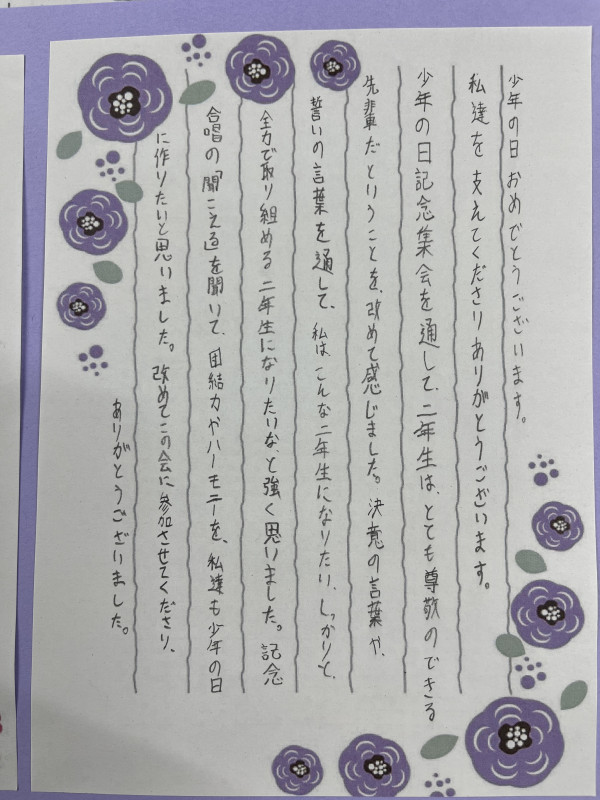 少年の日 おめでとうございます。
私達を支えてくださりありがとうございます。
少年の日記念集会を通して、二年生は、とても尊敬のできる
先輩だということを、改めて感じました。決意の言葉や、
誓いの言葉を通して、私はこんな二年生になりたい、しっかりと、
全力で取り組める二年生になりたいな、と強く思いました。記念
合唱の「聞こえる」を聞いて、団結力やハーモニーを、私達も少年の日
に作りたいと思いました。改めてこの会に参加させてくださり、
ありがとうございました。